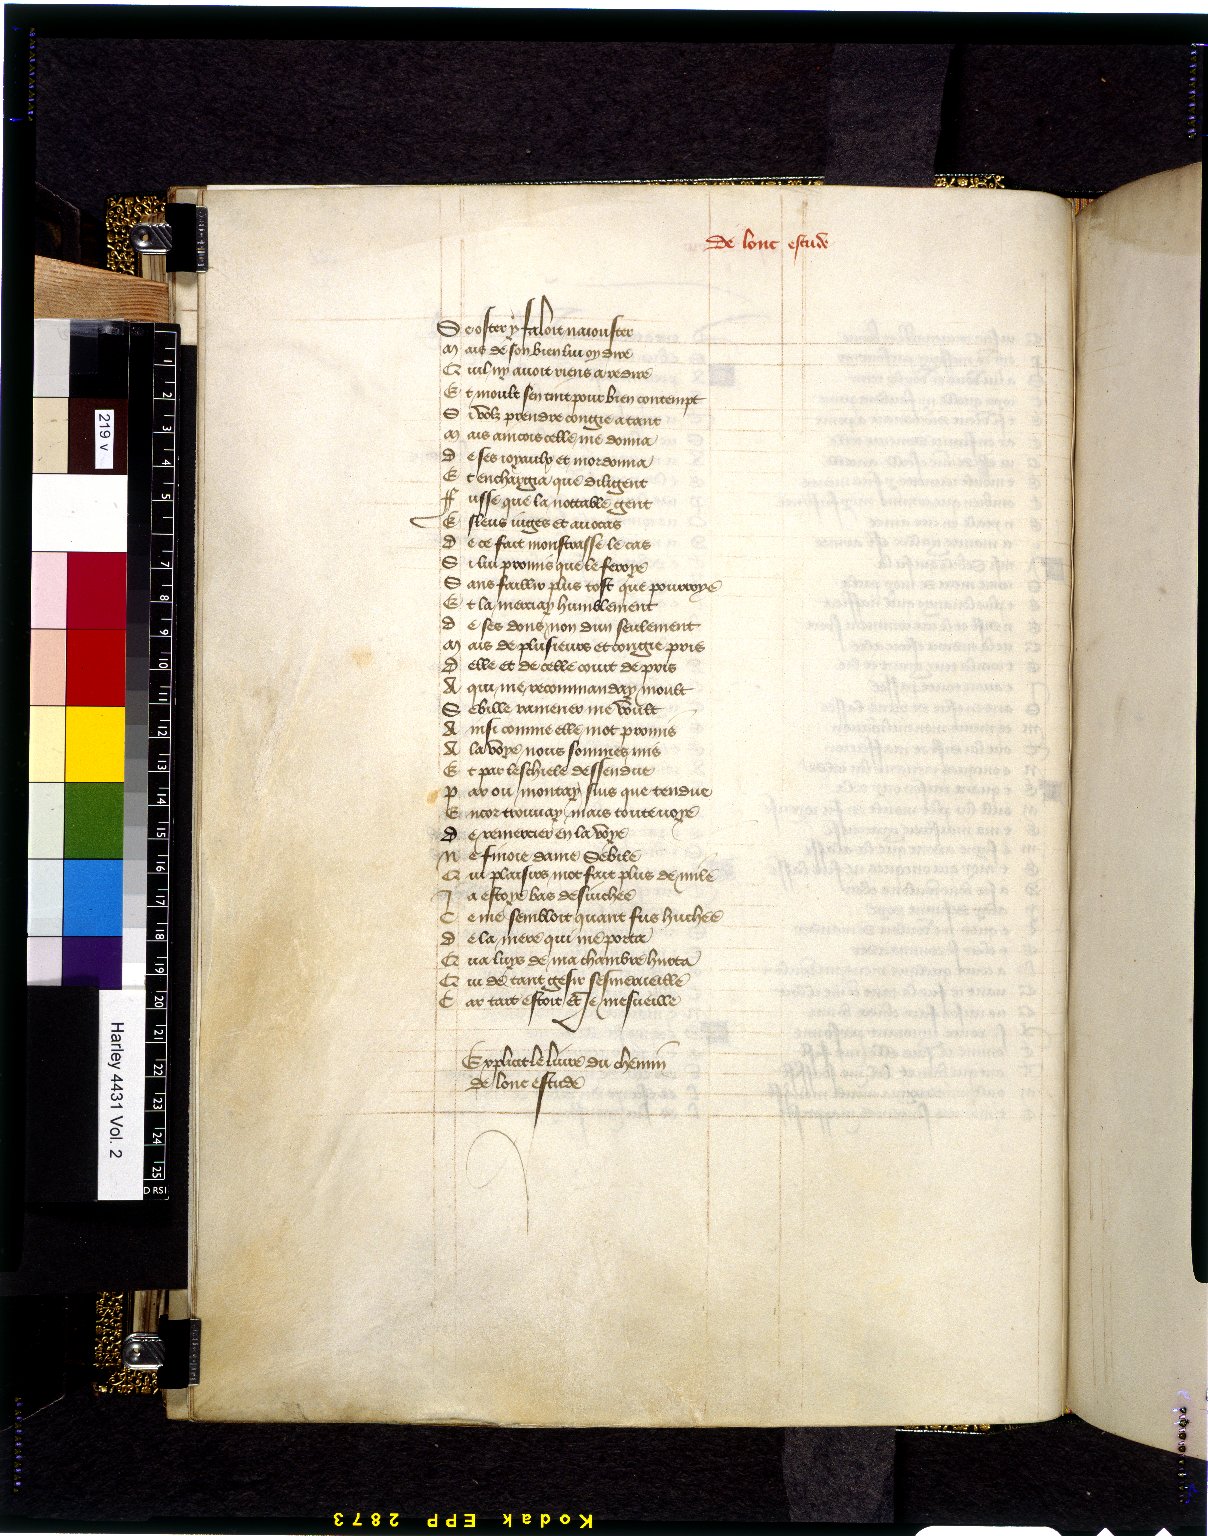 de lonc estude
Se oster y faloit naiouster
Mais de son bien luy oy dire
Quil ny auoit riens a redire
Et moult sen tint pour bien contempt
Si volz prendre congie atant
Mais aincois celle me donna
De ses ioyaulx et mordonna
Et enchargia que diligent
Fusse que la nottable gent
Esleus iuges et auocas
De ce fait monstrasse le cas
Si lui promis que le feroye
Sans faillir plus tost que pourroye
Et la merciay humblement
De ses dons non dun seulement
Mais de plusieurs et congie pris
Delle et de celle court de pris
A qui me recommanday moult
Sebille ramener me voult
Ainsi comme elle mot promis
A la voye nous sommes mis
Et par leschiele dessendue
Par ou montay suis que tendue
Encor trouuay mais toute uoye
De remercier en la voye
Ne finoie dame Sebile
Qui plaisirs mot fait plus de mile
Ja estoye bas desiuchee
Ce me sembloit quant fus huchee
De la mere qui me porta
Qua luys de ma chambre hurta
Qui de tant gesir sesmerueille
Car tart estoit Et Je mesueille
Explicit le liure du chemin
de lonc estude
219 v
1
2
3
4
5
6
7
8
9
10
11
12
13
14
15
16
17
18
19
20
21
22
23
24
25
Harley 4431 Vol. 2
Kodak EPP 2873